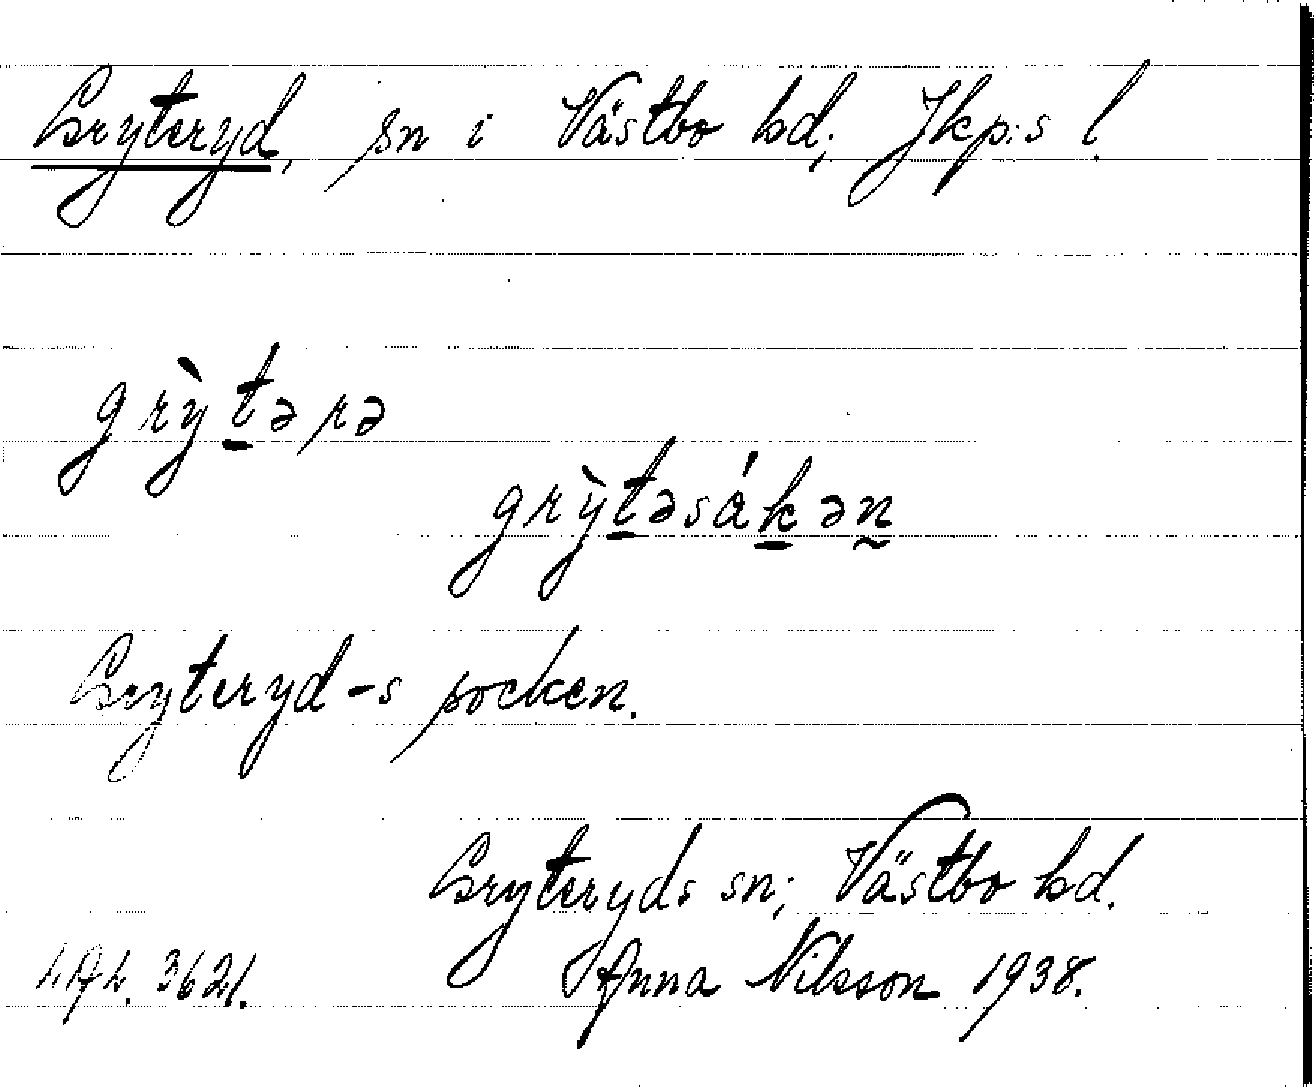 Gryteryd, sn i Västbo hd; Jkp:s l.
grỳt̲ərə
grỳt̲əsák̲ən̰
Gryteryd-s socken.
Gryteryds sn; Västbo hd.
LAL. 3621. Anna Nilsson 1938.